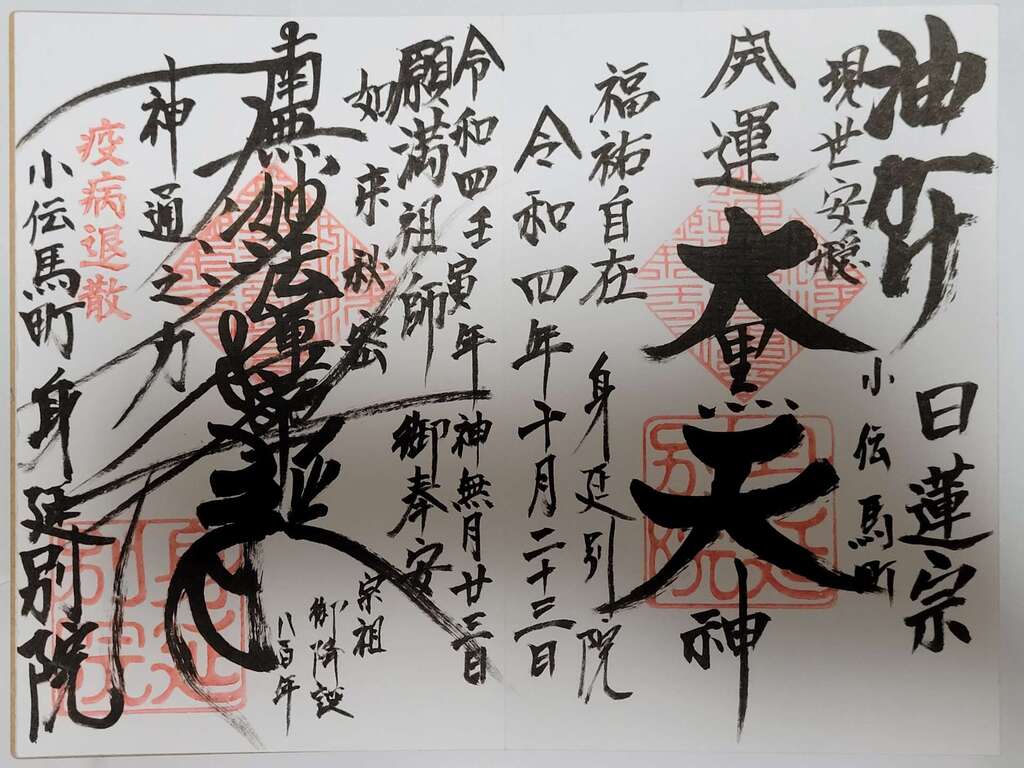 油かけ
日蓮宗
現世安穏
小伝馬町
開運
大黒天神
福祐自在
身延別院
令和四年十月二十三日
身延別院
令和四壬寅年神無月廿三日
願満祖師
御奉安
如来秘密
南無妙法蓮華経
宗祖
御降誕
八百年
神通之力
疫病退散
小伝馬町
身延別院
身延別院